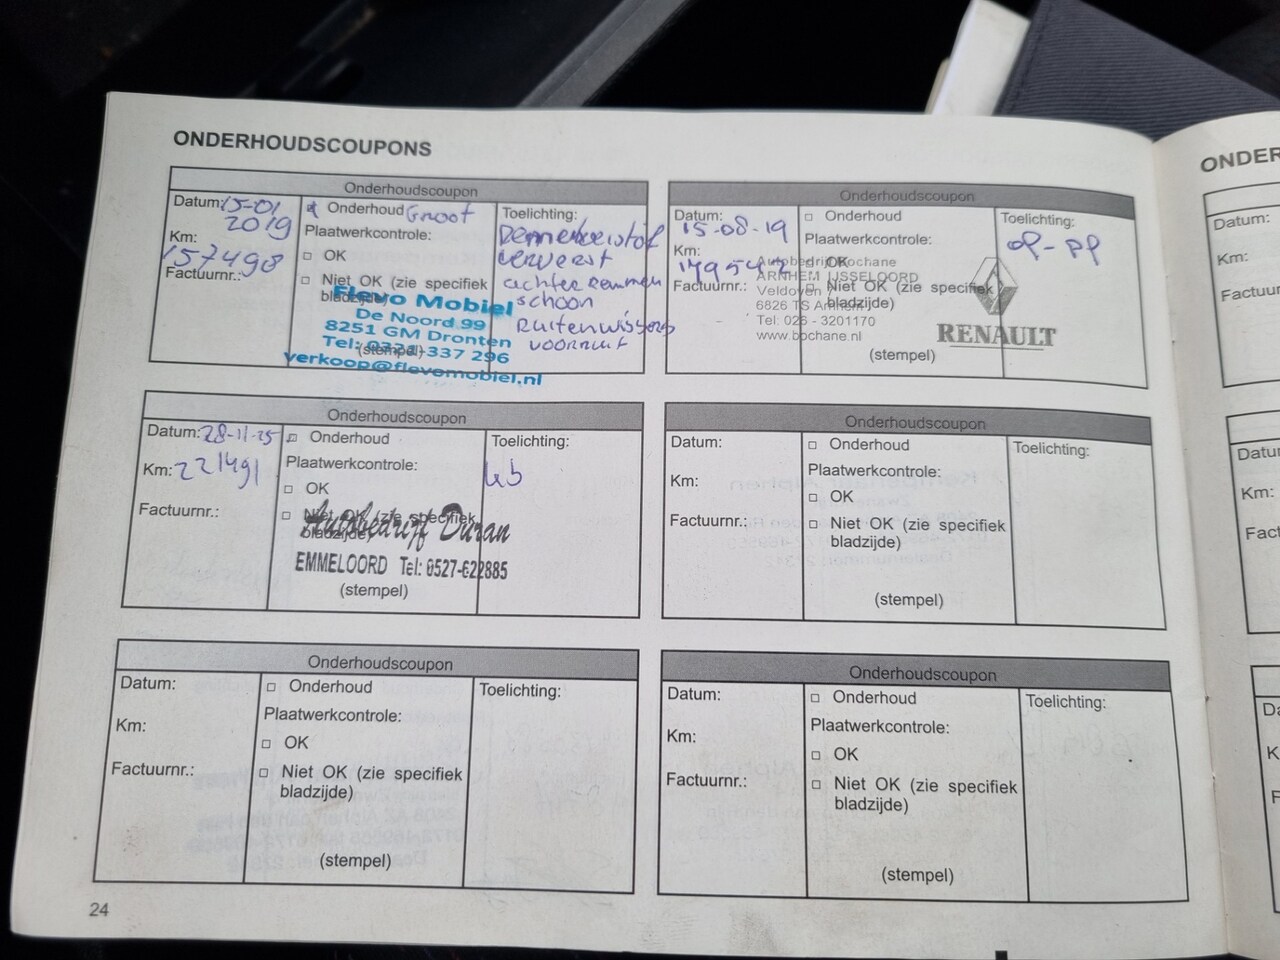 ONDERHOUDSCOUPONS
Onderhoudscoupon
Datum: 15-01
2019
Km:
157498
Factuurnr.:
Onderhoud Groot
Plaatwerkcontrole:
OK
Niet OK (zie specifiek
bladzijde)
Flevo Mobiel
De Noord 99
8251 GM Dronten
Tel: 0321-337 296
(stempel)
verkoop@flevomobiel.nl
Toelichting:
ververst
achter remmen
schoon
Ruitenwissers
voorruit
Onderhoudscoupon
Datum:
15-08-19
Km:
Factuurnr.:
Onderhoud
Plaatwerkcontrole:
OK
Niet OK (zie specifiek
bladzijde)
Autobedrijf Bochane
ARNHEM IJSSELOORD
Veldoven
6826 TS Arnhem
Tel: 026 - 3201170
www.bochane.nl
(stempel)
Toelichting:
RENAULT
Onderhoudscoupon
Datum: 28-11-25
Km: 221491
Factuurnr.:
Onderhoud
Plaatwerkcontrole:
OK
Niet OK (zie specifiek
bladzijde)
Autobedrijf Duran
EMMELOORD Tel: 0527-622885
(stempel)
Toelichting:
Onderhoudscoupon
Datum:
Km:
Factuurnr.:
Onderhoud
Plaatwerkcontrole:
OK
Niet OK (zie specifiek
bladzijde)
(stempel)
Toelichting:
Onderhoudscoupon
Datum:
Km:
Factuurnr.:
Onderhoud
Plaatwerkcontrole:
OK
Niet OK (zie specifiek
bladzijde)
(stempel)
Toelichting:
Onderhoudscoupon
Datum:
Km:
Factuurnr.:
Onderhoud
Plaatwerkcontrole:
OK
Niet OK (zie specifiek
bladzijde)
(stempel)
Toelichting:
24
ONDER
Datum:
Km:
Factuur
Datu
Km:
Fact
Da
K
F